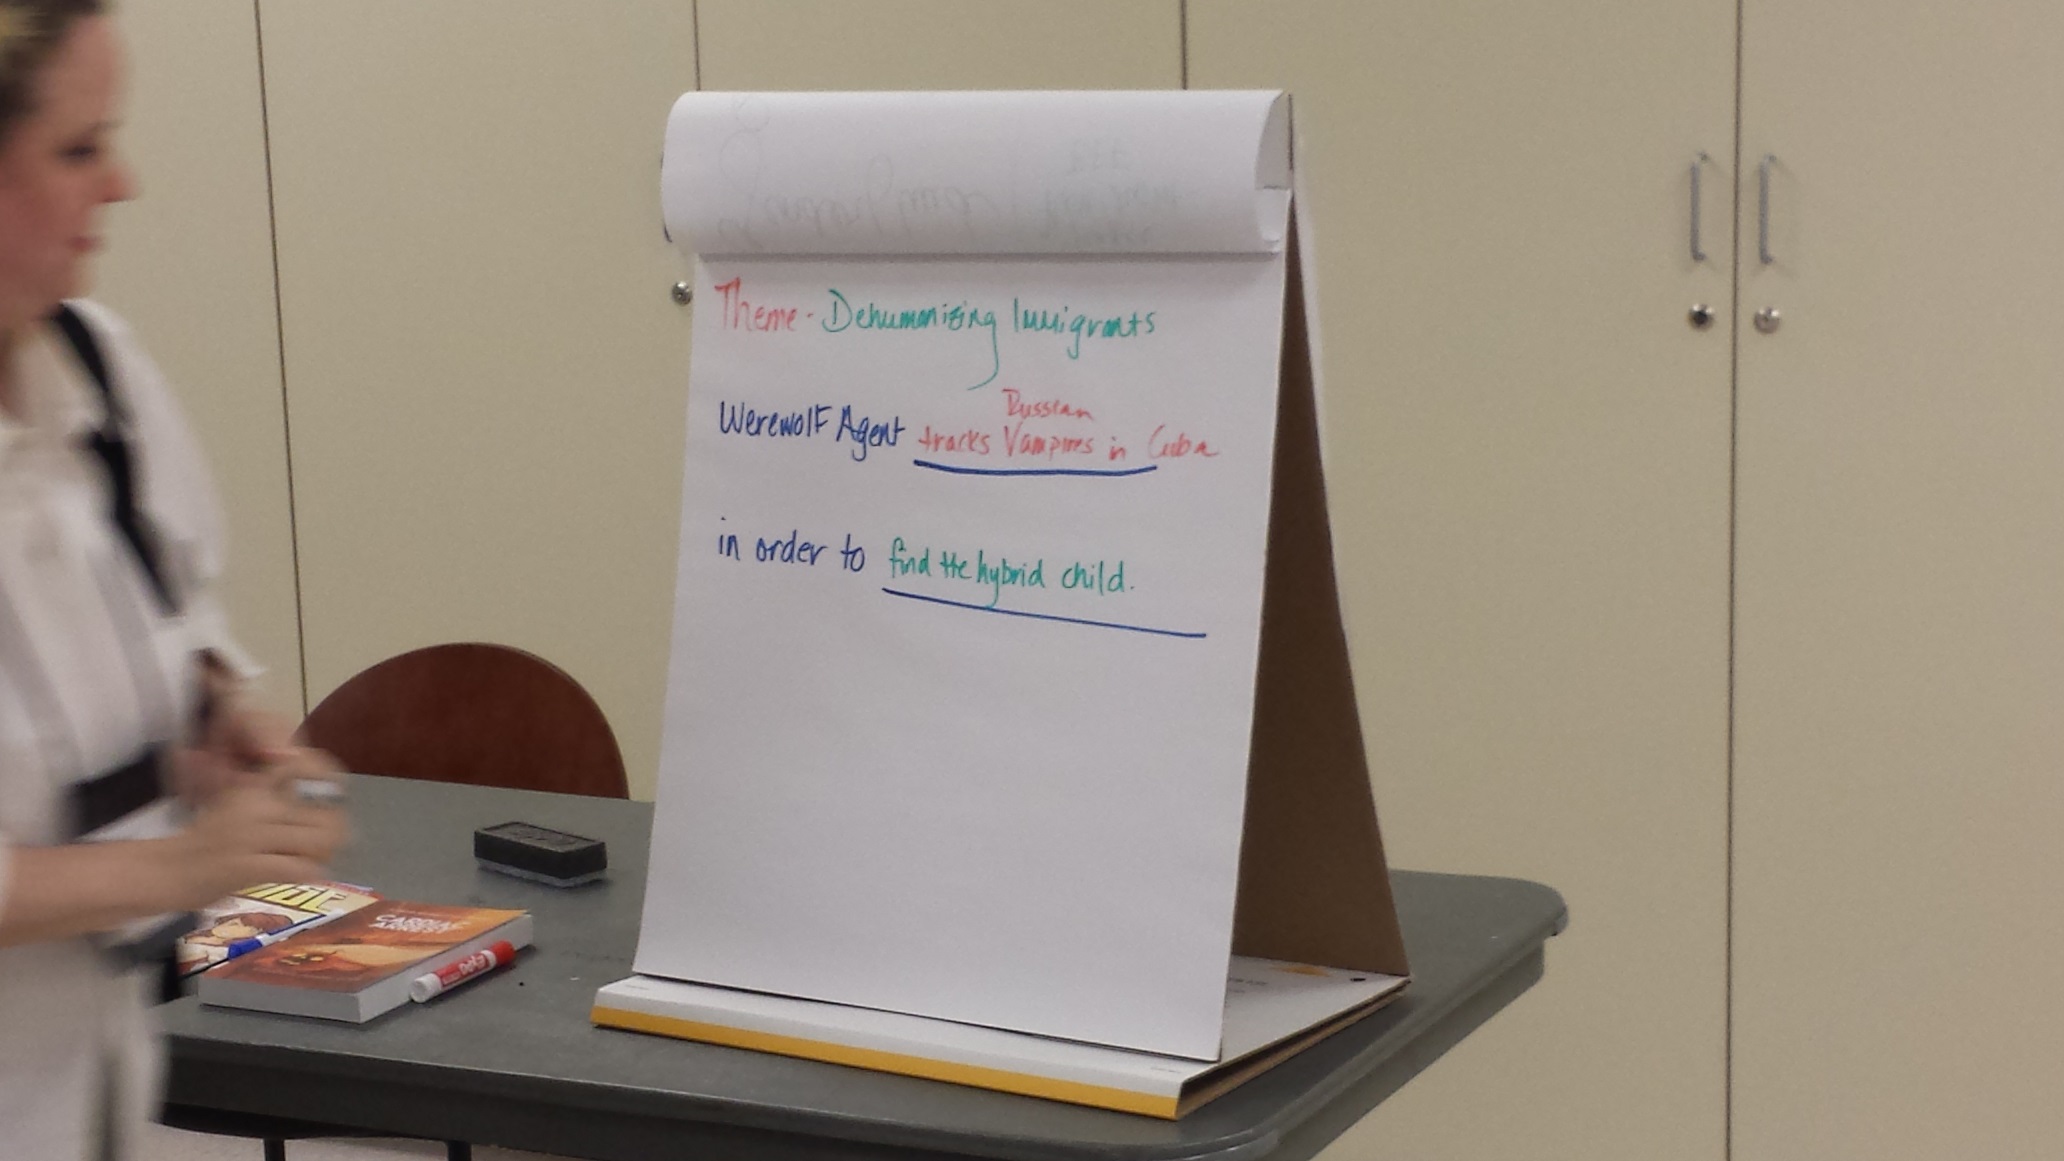 Theme - Dehumanizing Immigrants
Russian
Werewolf Agent tracks Vampires in Cuba
in order to find the hybrid child.
CARDIAC
ARREST